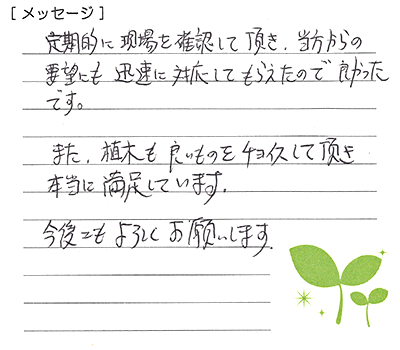 [メッセージ]
定期的に現場を確認して頂き、当方からの
要望にも迅速に対応してもらえたので良かった
です。
また、植木も良いものをチョイスして頂き
本当に満足しています。
今後ともよろしくお願いします。